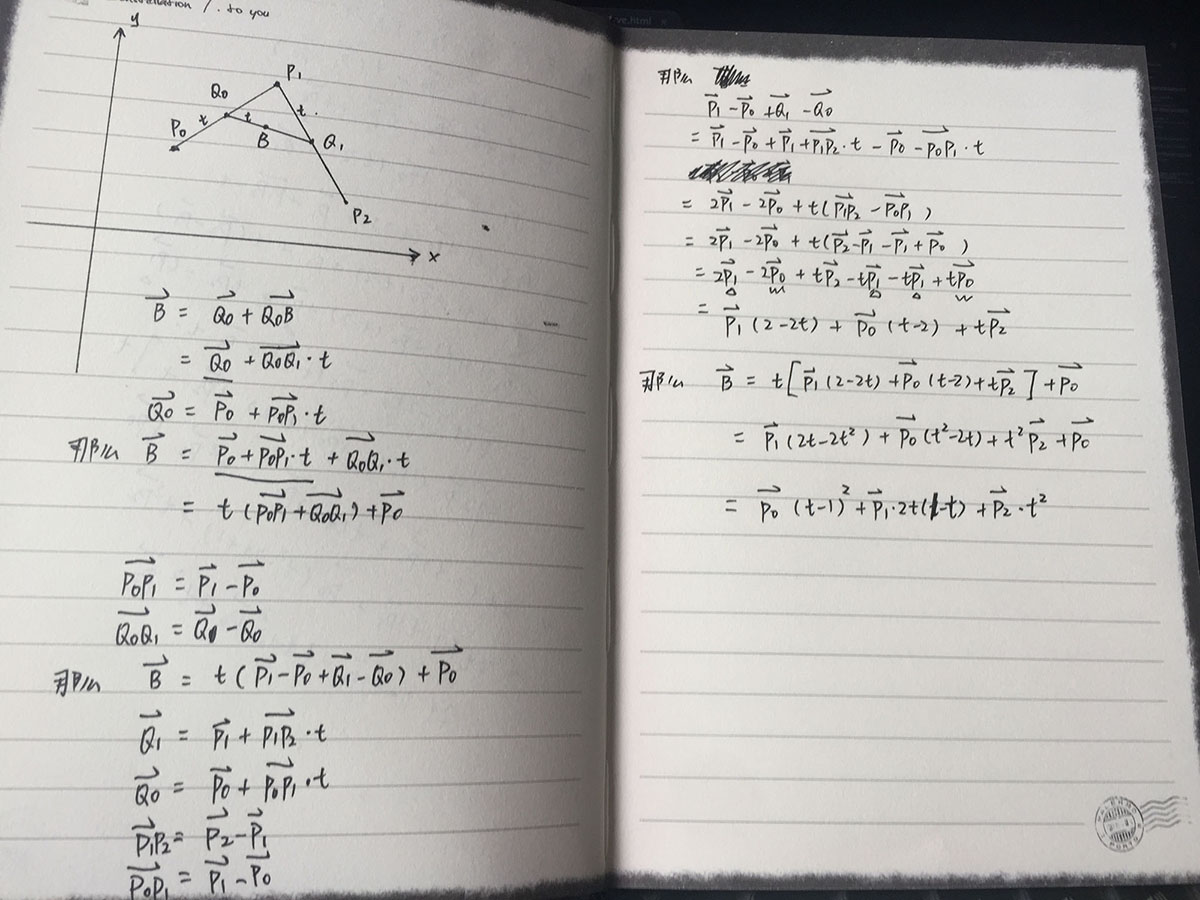 . to you
y
P₁
Q₀
t
t
t
P₀
B
Q₁
P₂
x
B⃗ = Q₀⃗ + Q₀B⃗
= Q₀⃗ + Q₀Q₁⃗ · t
Q₀⃗ = P₀⃗ + P₀P₁⃗ · t
那么 B⃗ = P₀⃗ + P₀P₁⃗ · t + Q₀Q₁⃗ · t
= t (P₀P₁⃗ + Q₀Q₁⃗) + P₀⃗
P₀P₁⃗ = P₁⃗ - P₀⃗
Q₀Q₁⃗ = Q⃗ - Q₀⃗
那么 B⃗ = t (P₁⃗ - P₀⃗ + Q₁⃗ - Q₀⃗) + P₀⃗
Q₁⃗ = P₁⃗ + P₁P₂⃗ · t
Q₀⃗ = P₀⃗ + P₀P₁⃗ · t
P₁P₂⃗ = P₂⃗ - P₁⃗
P₀P₁⃗ = P₁⃗ - P₀⃗
那么
P₁⃗ - P₀⃗ + Q₁⃗ - Q₀⃗
= P₁⃗ - P₀⃗ + P₁⃗ + P₁P₂⃗ · t - P₀⃗ - P₀P₁⃗ · t
= 2P₁⃗ - 2P₀⃗ + t (P₁P₂⃗ - P₀P₁⃗)
= 2P₁⃗ - 2P₀⃗ + t (P₂⃗ - P₁⃗ - P₁⃗ + P₀⃗)
= 2P₁⃗ - 2P₀⃗ + tP₂⃗ - tP₁⃗ - tP₁⃗ + tP₀⃗
= P₁⃗ (2-2t) + P₀⃗ (t-2) + tP₂⃗
那么 B⃗ = t [P₁⃗ (2-2t) + P₀⃗ (t-2) + tP₂⃗] + P₀⃗
= P₁⃗ (2t-2t²) + P₀⃗ (t²-2t) + t² P₂⃗ + P₀⃗
= P₀⃗ (t-1)² + P₁⃗ · 2t(1-t) + P₂⃗ · t²